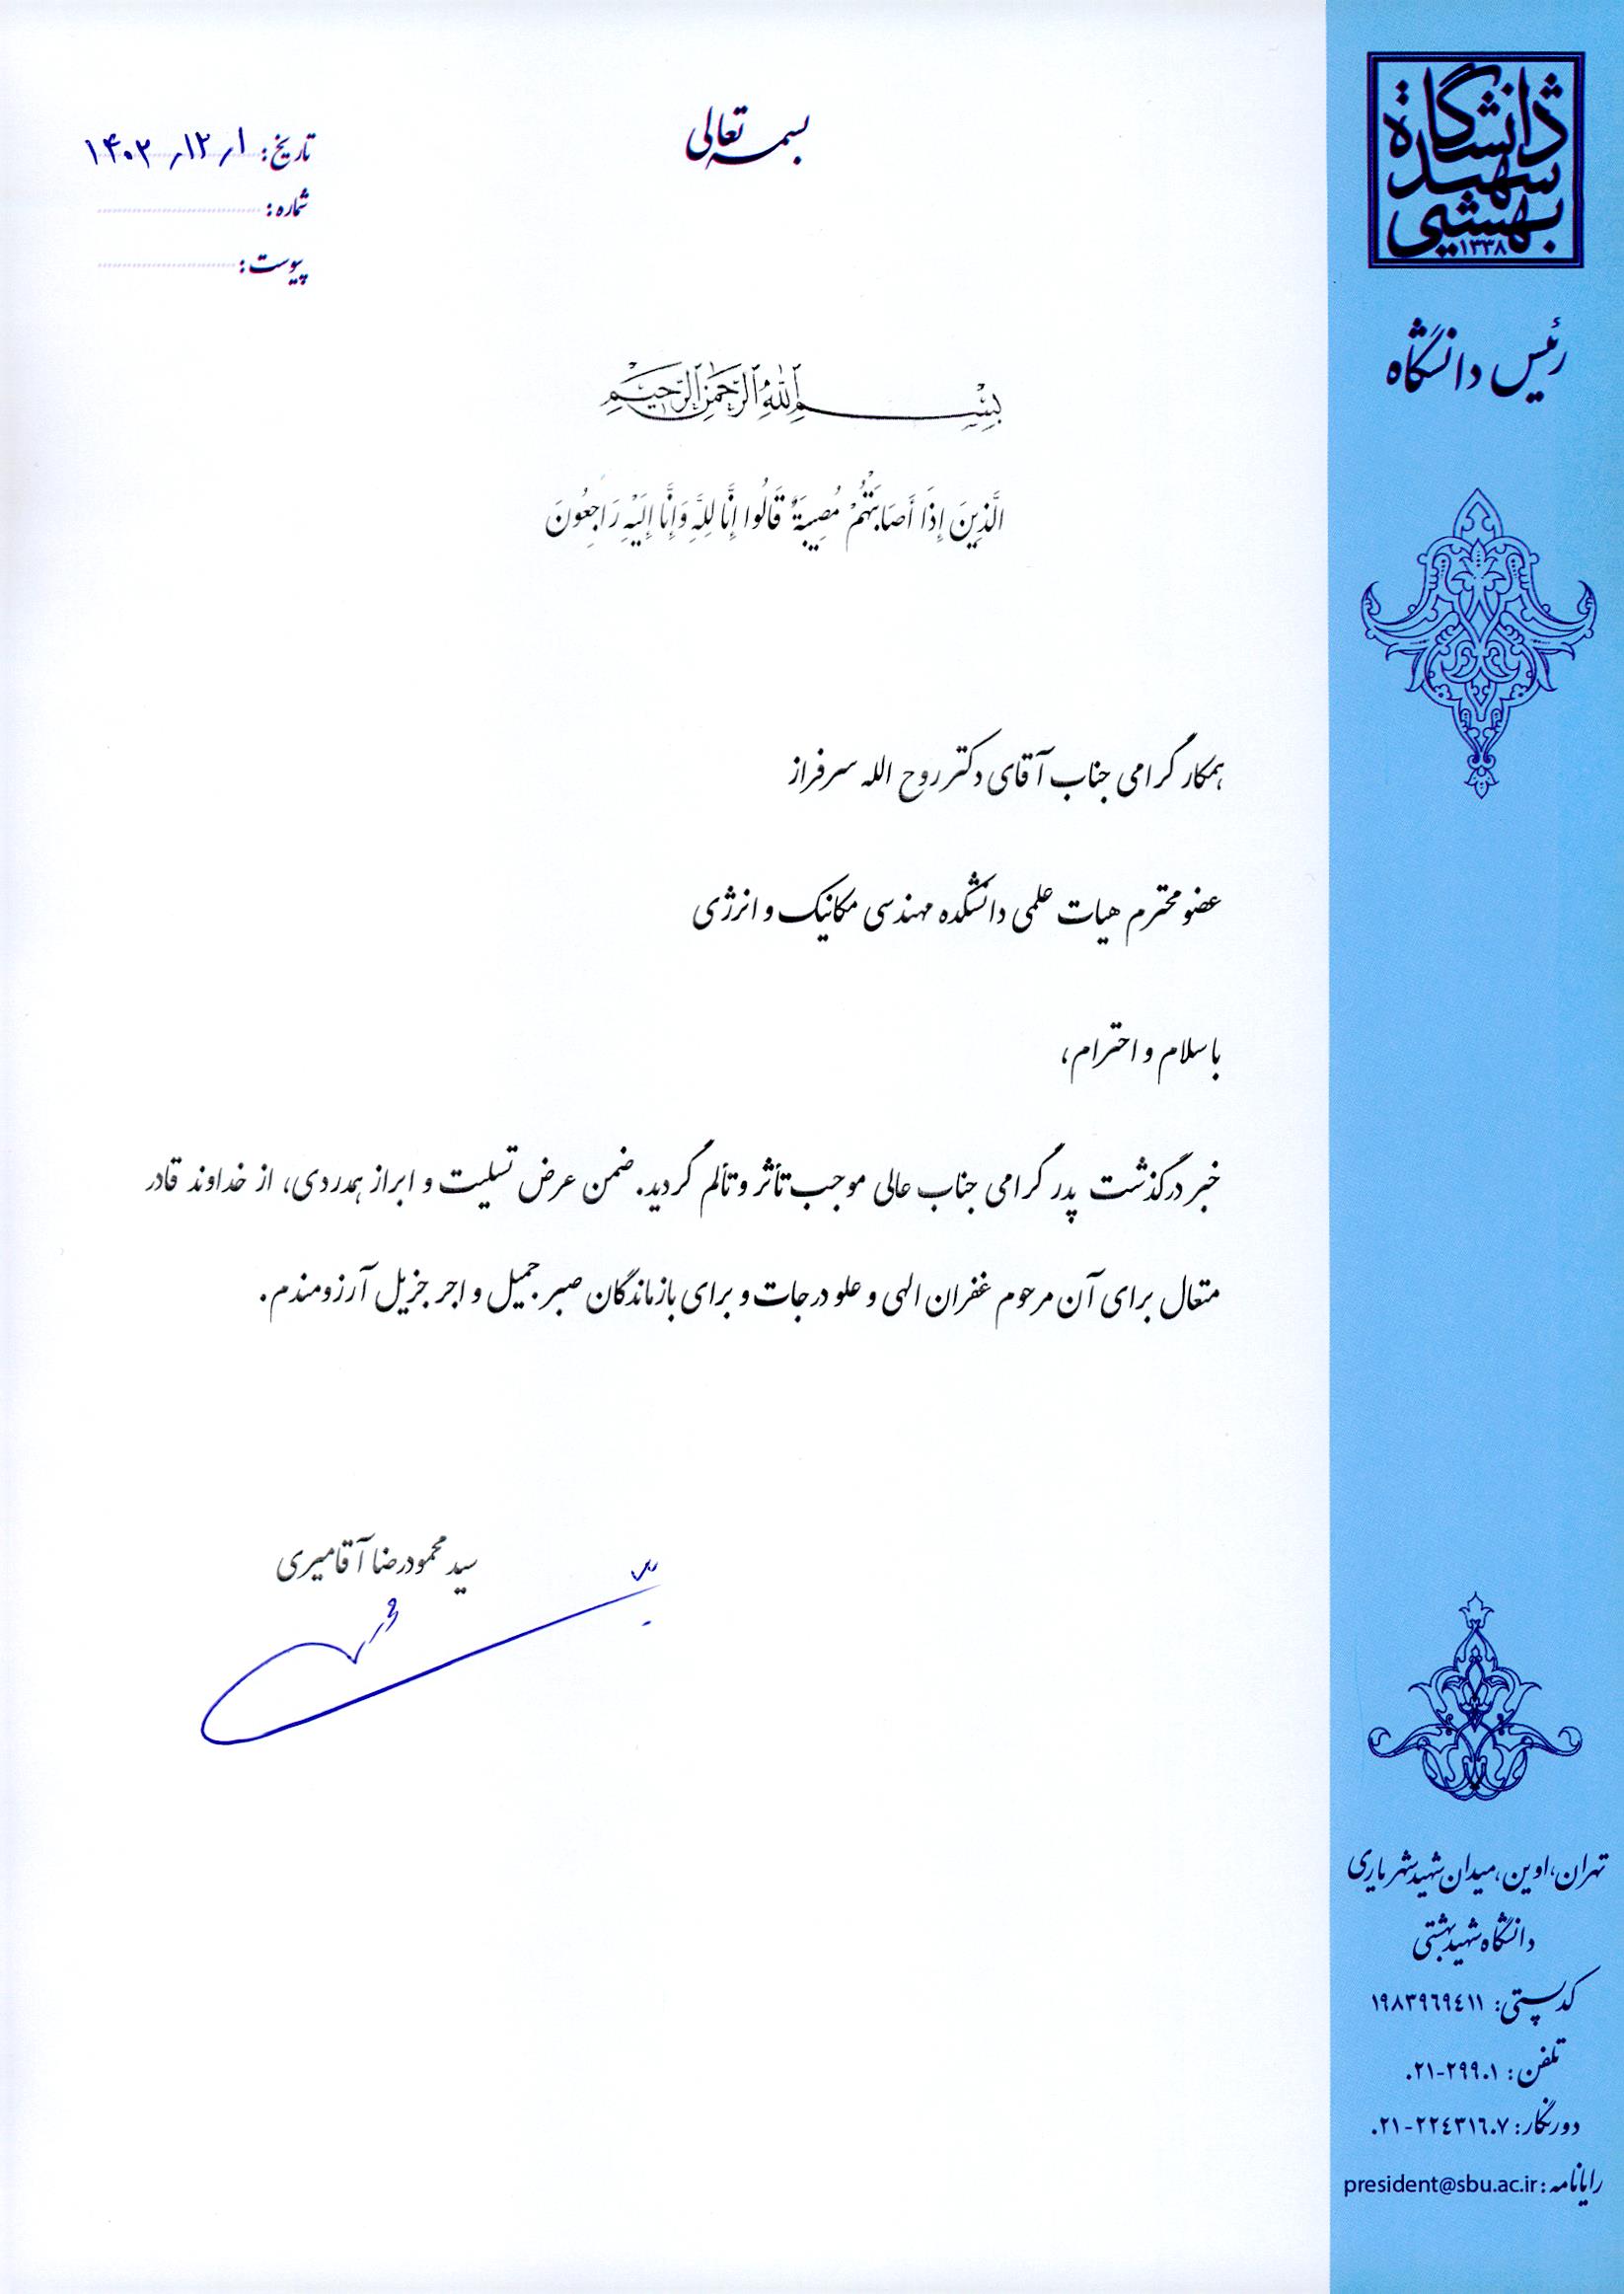 بسمه تعالی
تاریخ: ۱۴۰۲٫۱۲٫۱
شماره:
پیوست:
بِسْمِ ٱللَّهِ ٱلرَّحْمَٰنِ ٱلرَّحِيمِ
الَّذِينَ إِذَا أَصَابَتْهُمْ مُصِيبَةٌ قَالُوا إِنَّا لِلَّهِ وَإِنَّا إِلَيْهِ رَاجِعُونَ
همکار گرامی جناب آقای دکتر روح الله سرفراز
عضو محترم هیات علمی دانشکده مهندسی مکانیک و انرژی
با سلام و احترام،
خبر درگذشت پدر گرامی جناب عالی موجب تأثر و تألم گردید. ضمن عرض تسلیت و ابراز همدردی، از خداوند قادر
متعال برای آن مرحوم غفران الهی و علو درجات و برای بازماندگان صبر جمیل و اجر جزیل آرزومندم.
سید محمودرضا آقامیری
دانشگاه
شهید
بهشتی
۱۳۳۸
رئیس دانشگاه
تهران، اوین، میدان شهید شهریاری
دانشگاه شهید بهشتی
کد پستی: ۱۹۸۳۹۶۹۴۱۱
تلفن: ۰۲۱-۲۹۹۰۱
دورنگار: ۰۲۱-۲۲۴۳۱۶۰۷
رایانامه: president@sbu.ac.ir